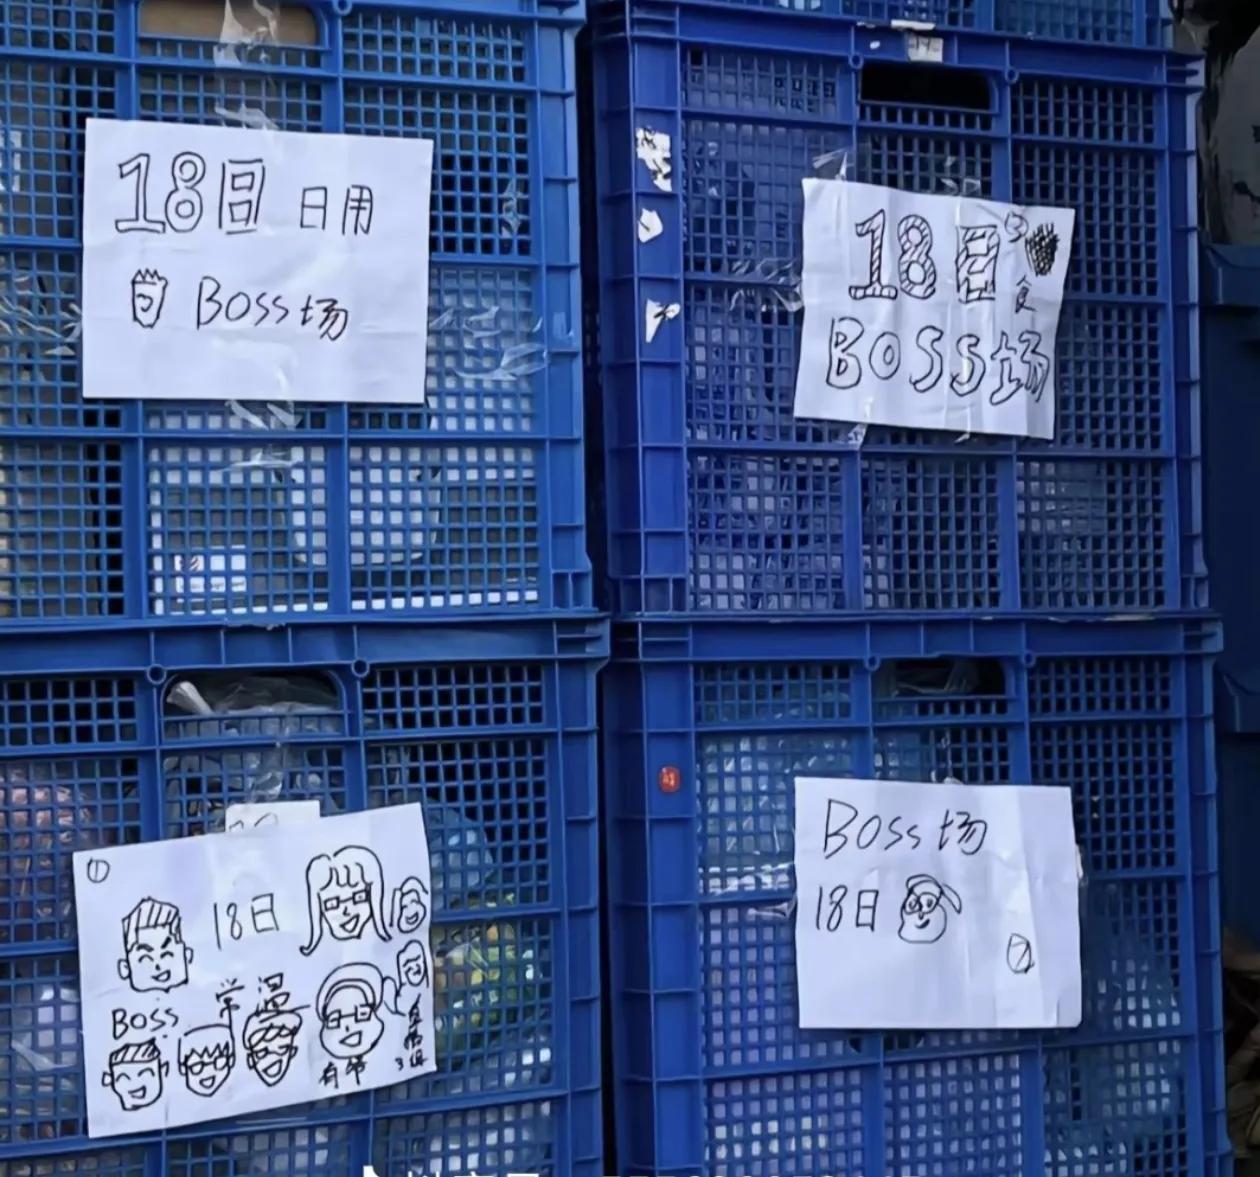 18日 日用
BOSS场
18日
食
BOSS场
①
18日
BOSS 常温
有
3
BOSS场
18日
②